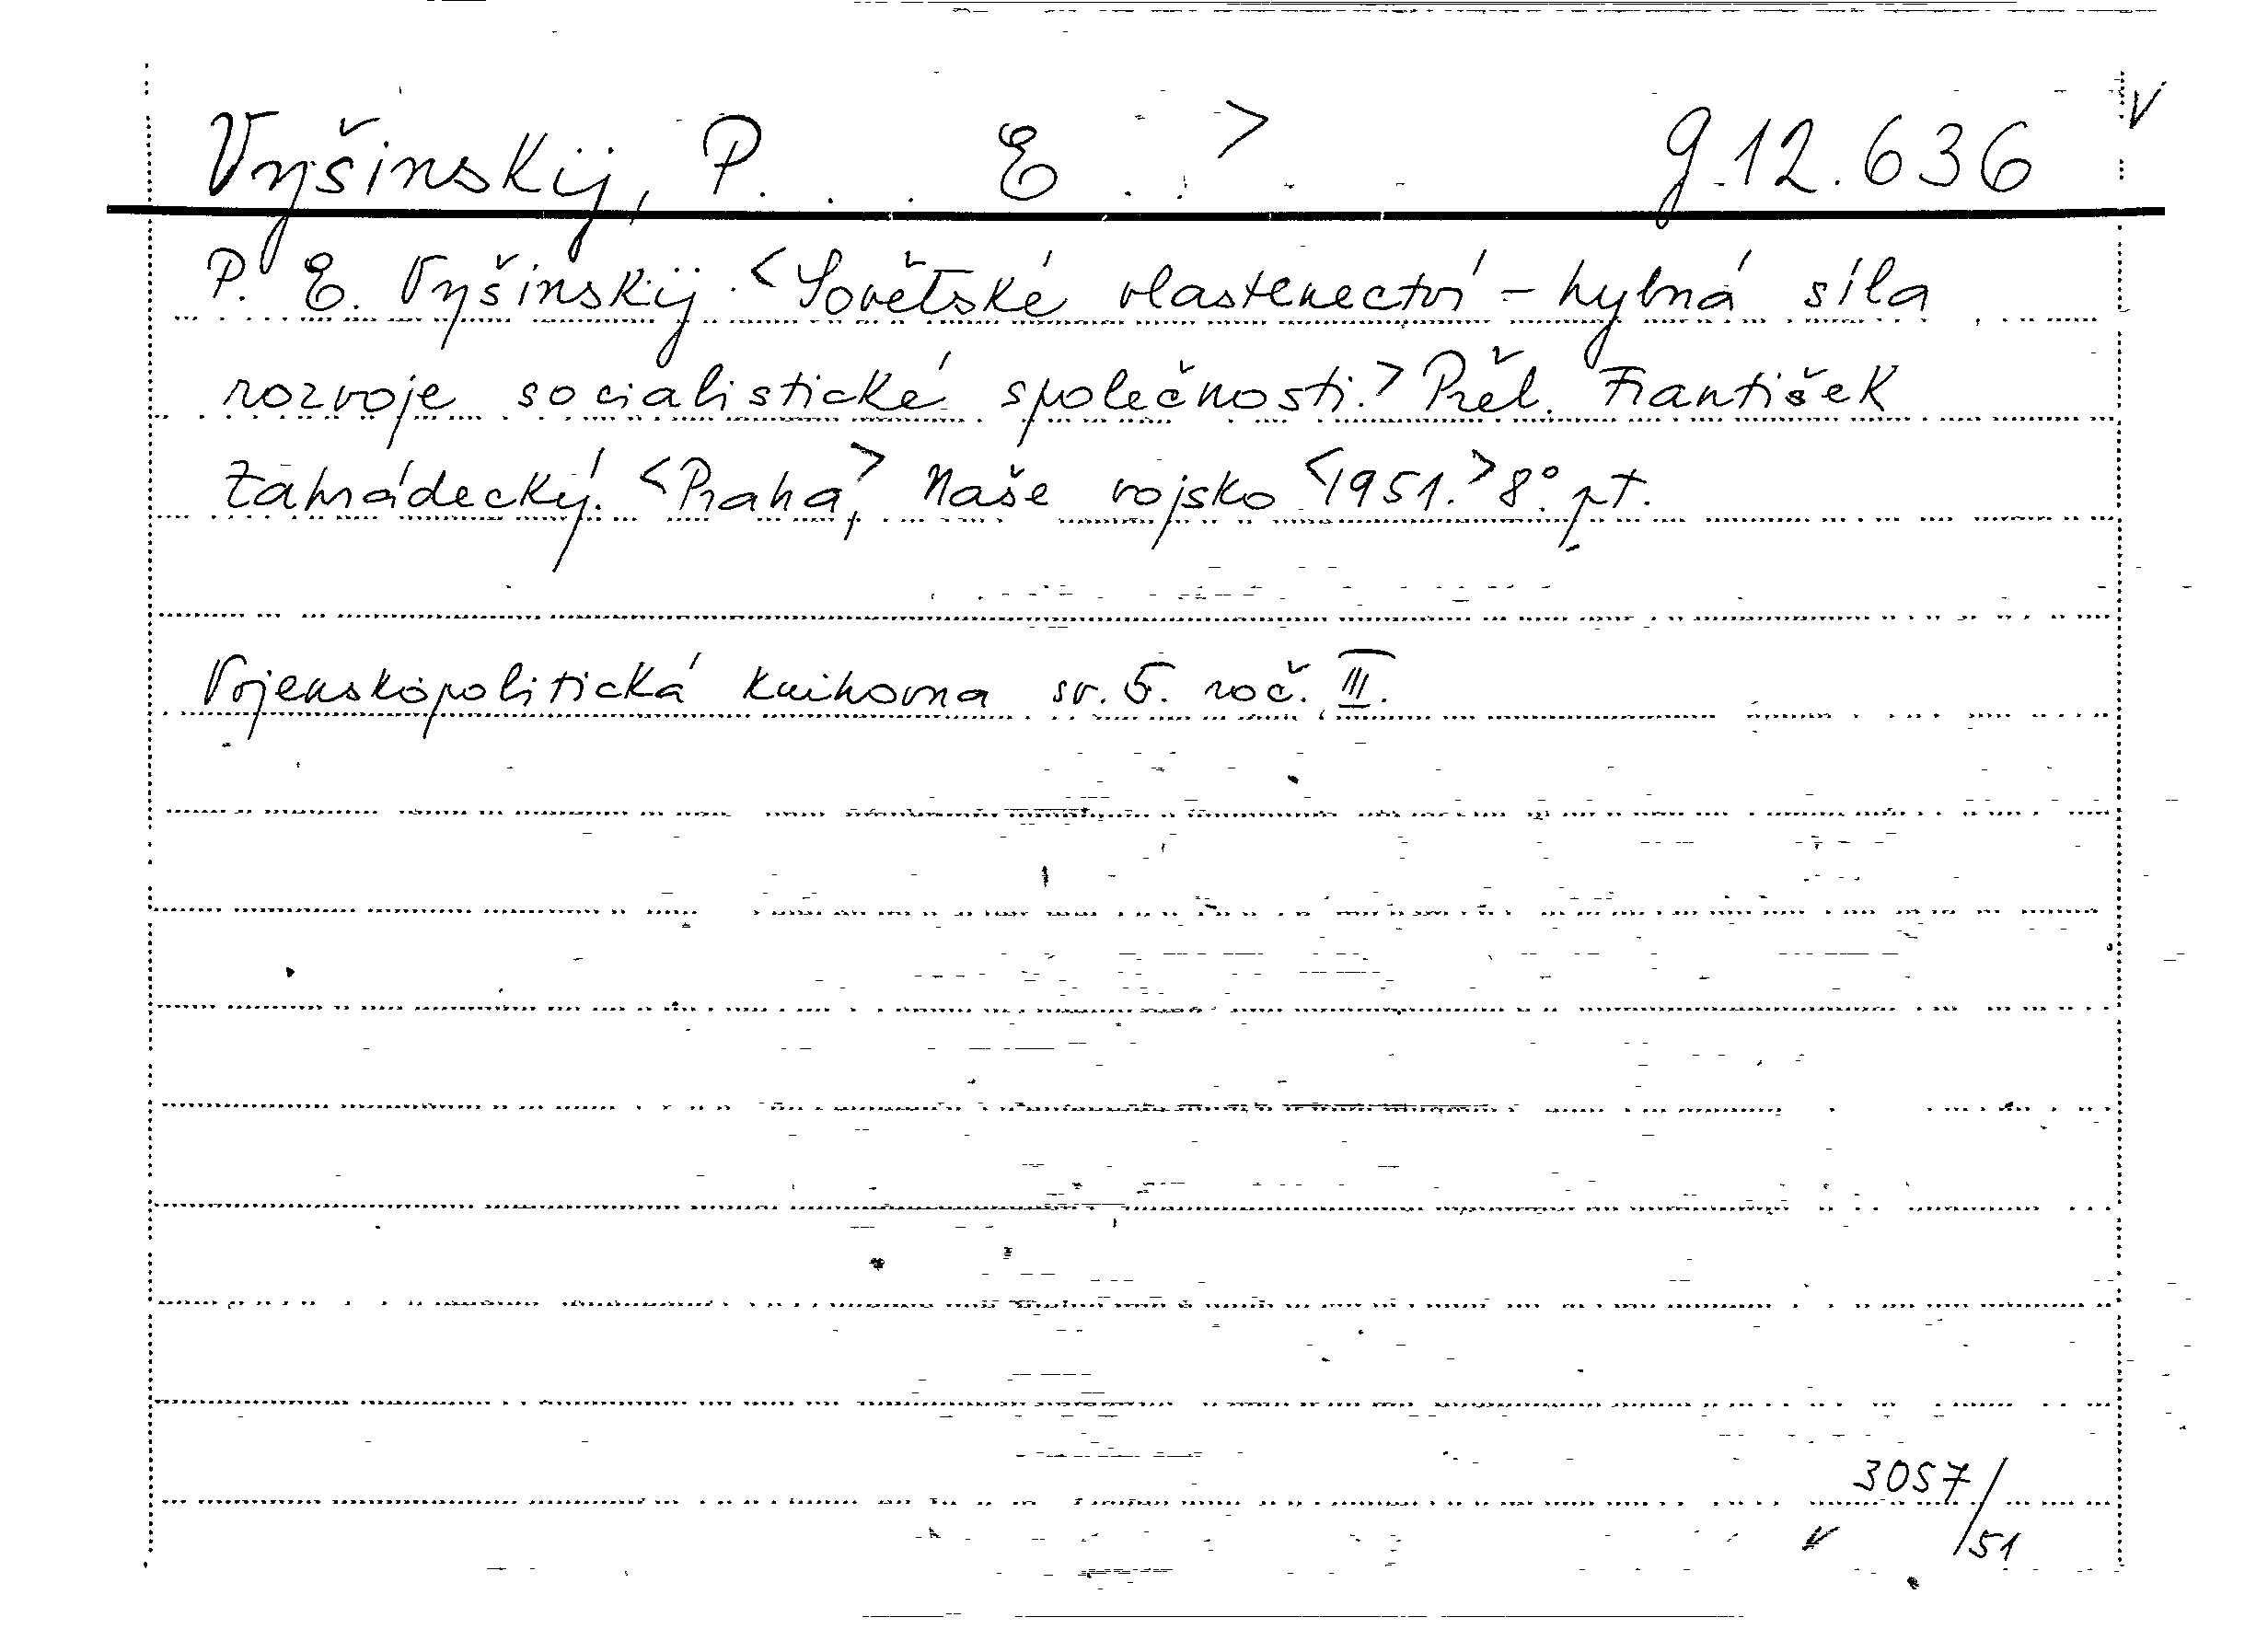 Vyšinskij, P. . . E . > g 12.636 V
P. E. Vyšinskij. <Sovětské vlastenectví - hybná síla
rozvoje socialistické společnosti.> Přel. František
Zahrádecký. <Praha,> Naše vojsko <1951.> 8°. pt.
Vojenskopolitická knihovna sv. 5. roč. III.
3057/51